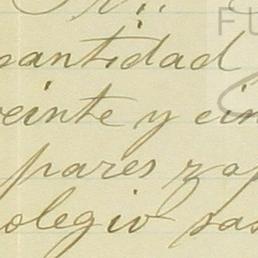 cantidad
veinte y cin
pares zap
olegio sas